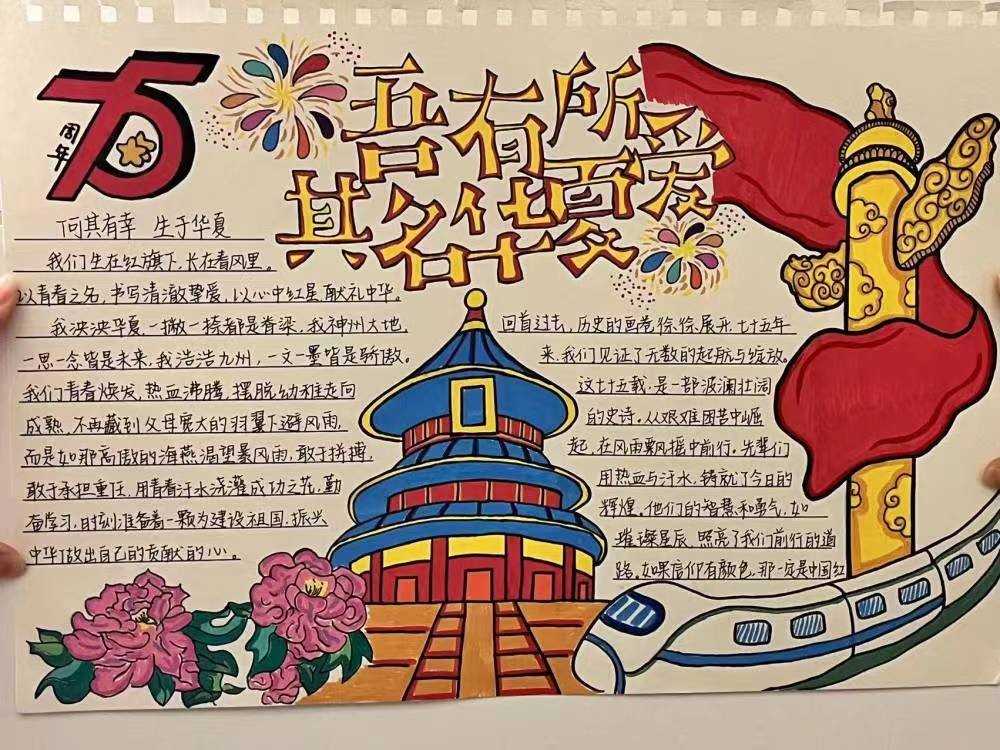 75
周年
吾有所爱
其名华夏
何其有幸 生于华夏
我们生在红旗下,长在春风里。
以青春之名,书写清澈挚爱,以心中红星献礼中华。
我泱泱华夏,一撇一捺都是脊梁,我神州大地,
一思一念皆是未来,我浩浩九州,一文一墨皆是骄傲。
我们青春焕发,热血沸腾,摆脱幼稚走向
成熟,不再藏到父母宽大的羽翼下避风雨,
而是如那高傲的海燕渴望暴风雨,敢于拼搏,
敢于承担重任,用青春汗水浇灌成功之花,勤
奋学习,时刻准备着一颗为建设祖国,振兴
中华做出自己的贡献的心。
回首过去,历史的画卷徐徐展开,七十五年
来,我们见证了无数的起航与绽放。
这七十五载,是一部波澜壮阔
的史诗。从艰难困苦中崛
起,在风雨飘摇中前行。先辈们
用热血与汗水,铸就了今日的
辉煌。他们的智慧和勇气,如
璀璨星辰,照亮了我们前行的道
路。如果信仰有颜色,那一定是中国红